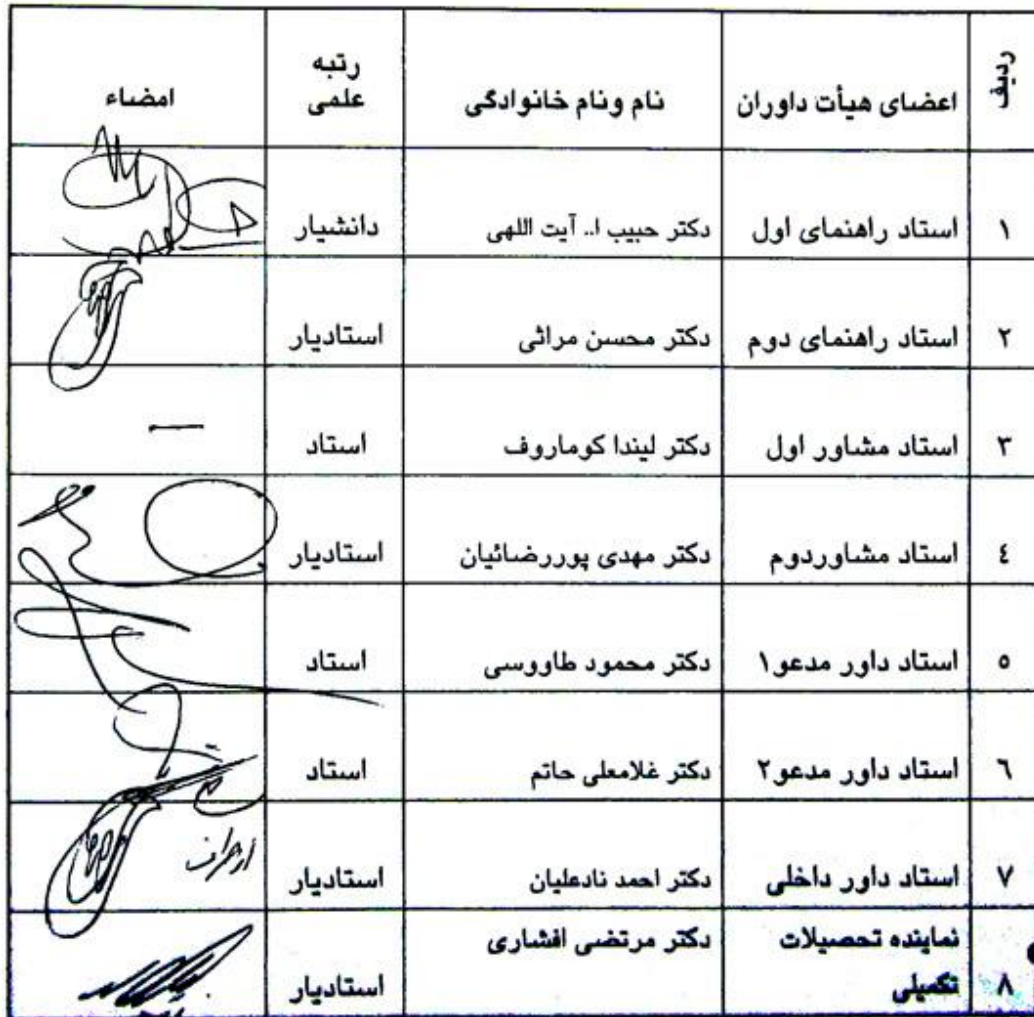 ردیف اعضای هیأت داوران نام ونام خانوادگی رتبه علمی امضاء
۱ استاد راهنمای اول دکتر حبیب ا.. آیت اللهی دانشیار
۲ استاد راهنمای دوم دکتر محسن مراثی استادیار
۳ استاد مشاور اول دکتر لیندا کوماروف استاد —
٤ استاد مشاوردوم دکتر مهدی پوررضائیان استادیار
٥ استاد داور مدعو۱ دکتر محمود طاووسی استاد
٦ استاد داور مدعو۲ دکتر غلامعلی حاتم استاد
۷ استاد داور داخلی دکتر احمد نادعلیان استادیار
۸ نماینده تحصیلات تکمیلی دکتر مرتضی افشاری استادیار